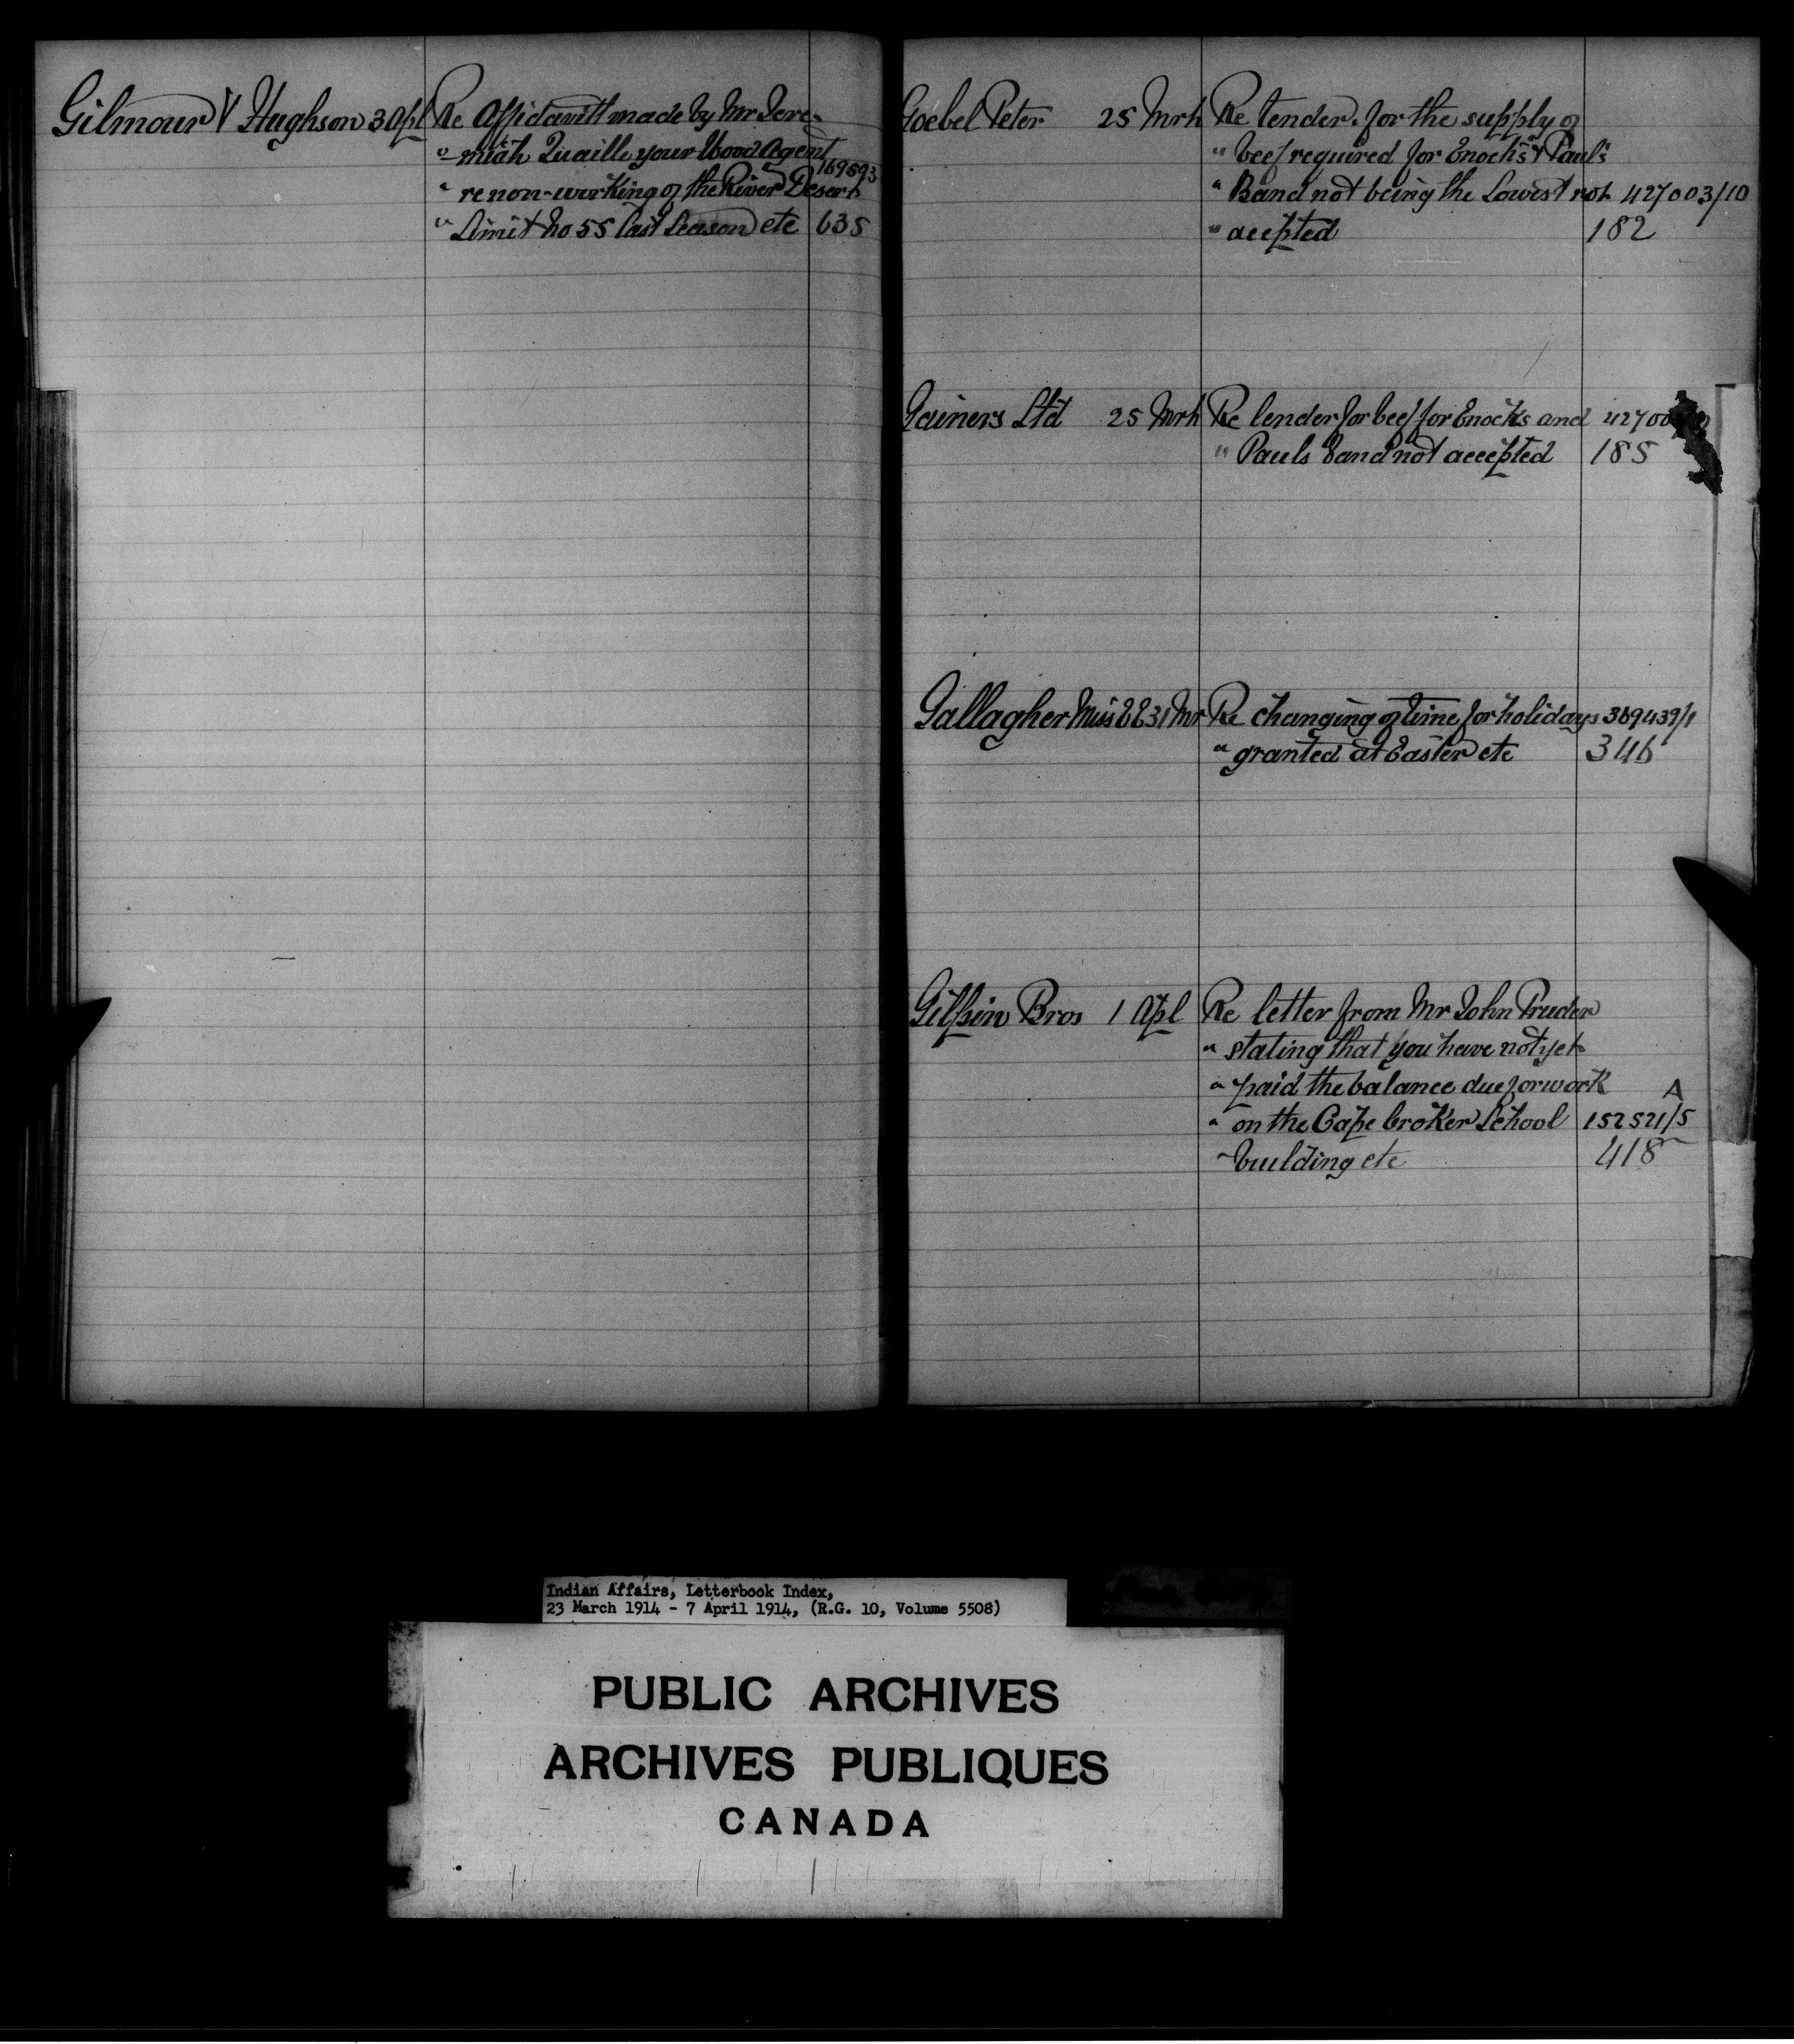 Gilmour & Hughson 3 Apl Re Affidavitt made by Mr Jere-
" miah Quaille your Wood Agent
169593
" re non-working of the River Desert
" Limit No 55 last Season etc 635
Goebel Peter 25 Mrh Re tender for the supply of
" beef required for Enoch's & Paul's
" Band not being the Lowest not 427003/10
" acepted 182
Gainers Ltd 25 Mrh Re tender for beef for Enochs and 42700
" Pauls Band not accepted 185
Gallagher Miss 31 Mr Re changing of time for holidays 369439/1
" granted at Easter etc 346
Gilpin Bros 1 Apl Re letter from Mr John Pruder
" stating that you have not yet
" paid the balance due for work A
" on the Cape Croker School 152521/5
" building etc 418
Indian Affairs, Letterbook Index,
23 March 1914 - 7 April 1914, (R.G. 10, Volume 5508)
PUBLIC ARCHIVES
ARCHIVES PUBLIQUES
CANADA